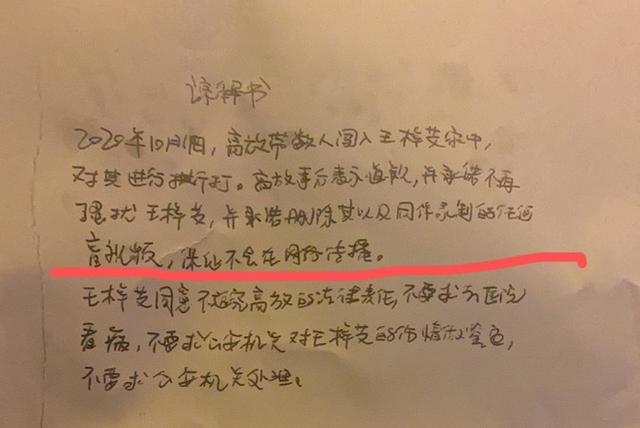 谅解书
2020年10月1日,高放带数人闯入王梓芠家中,
对其进行推行打。高放事后表示道歉,并承诺不再
骚扰王梓芠,并承诺删除其以及同伴录制的任何
音视频,保证不会在网络传播。
王梓芠同意不追究高放的法律责任,不要求去医院
看病,不要求公安机关对王梓芠的伤情做鉴定,
不要求公安机关处理。